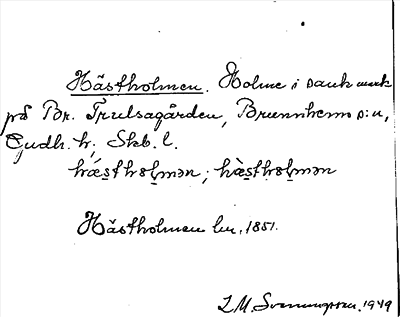 Hästholmen. Holme i sankmark
på Br. Trulsagården, Brunnhems s:n,
Gudh. h; Skb. l.
hæ̀stholmən; hæ̀stholmən
Hästholmen lm, 1851.
1949